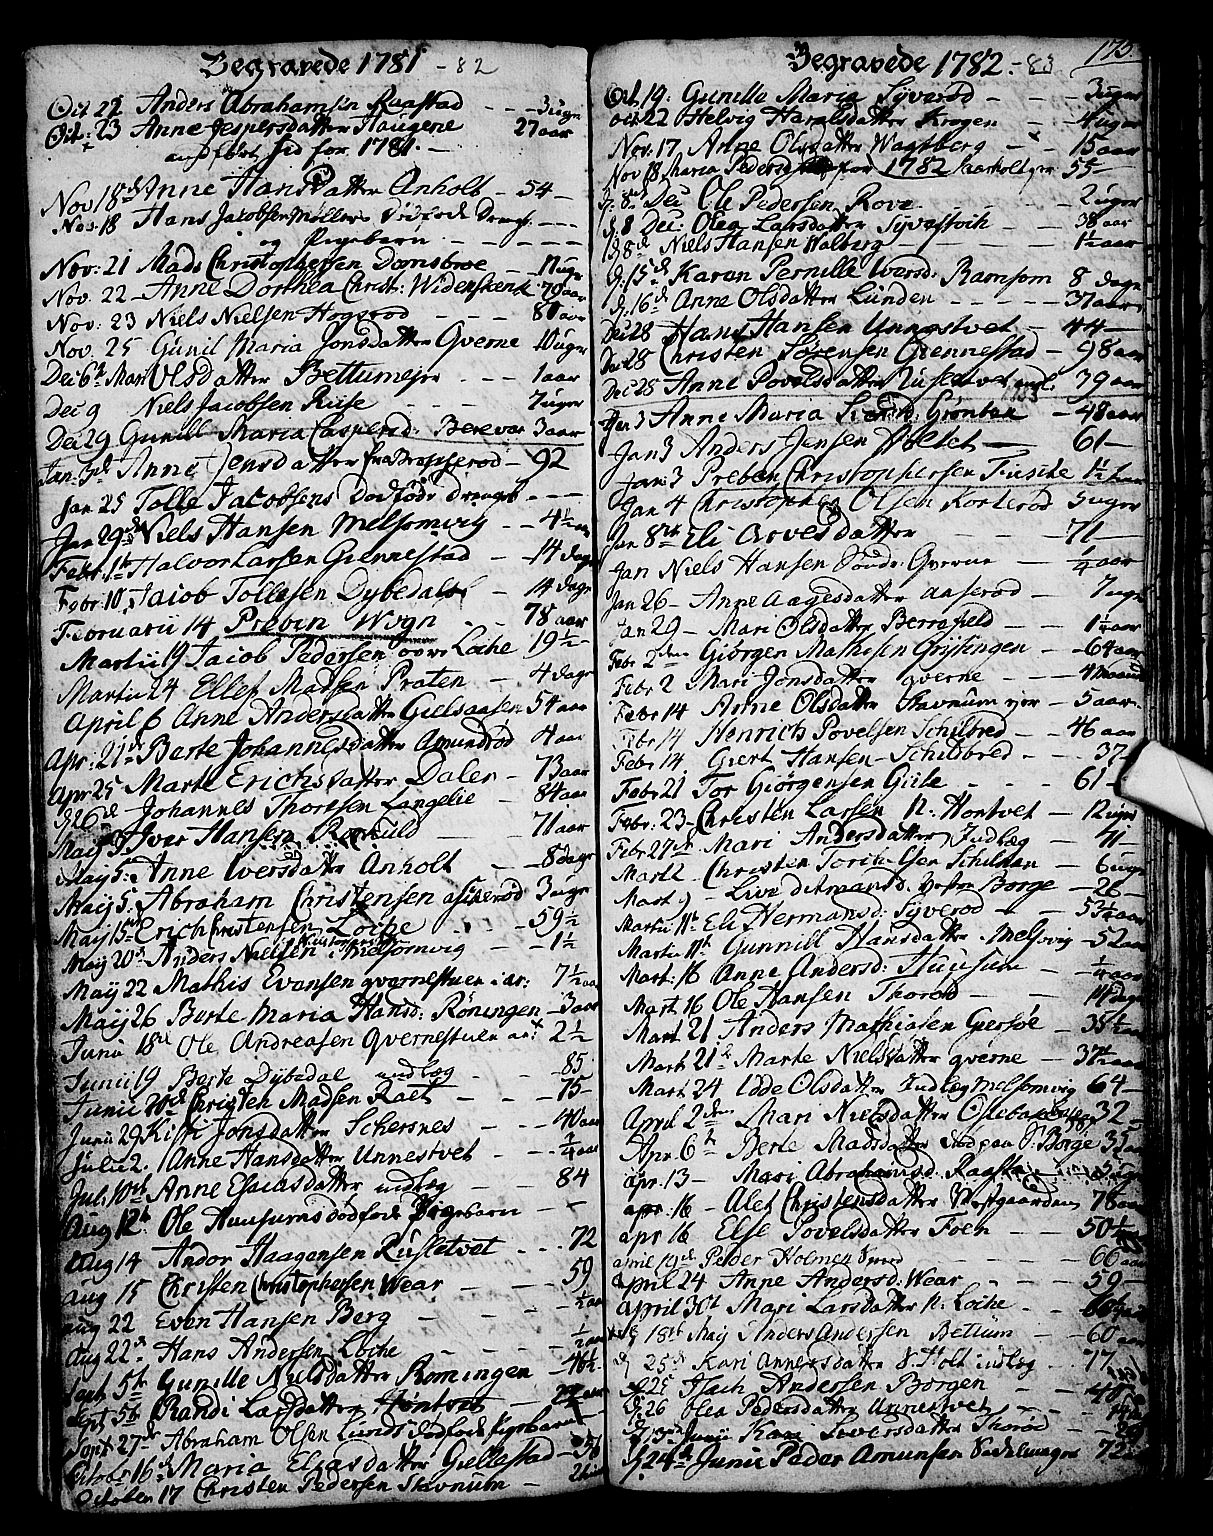 Begravede 1781 - 82
Oct 22 Anders Abrahamsen Raastad - - - 3 uger
Oct: 23 Anne Jespersdatter Haugene 27 aar
for 1781. -
Nov 18d Anne Hansdatter Anholt - 54 -
Nov. 18 Hans Jacobsen Møllers dødføde Drenge - - -
og Pigebarn - - - -
Nov: 21 Mads Christophersen Domsboe - - 11 uger
Nov. 22 - Anne Dorthea Christ: 70 aar
Nov: 23 Niels Nielsen Hogsrod - - - - 80 aar
Nov. 25 Gunil Maria Jonsdatter Qverne 10 uger
Dec 6t Mari Olsdatter Bettume - - - 1 aar
Dec 9 Niels Jacobsen Ruse - - - 7 uger
Dec 29 Gunill Maria Caspersd: Berevar 3 aar
Jan. 3d Anne Jensdatter 92
Jan 25 Tolle Jacobsens Dødfødt drengeb - - -
Jan 29d Niels Hansen Melsomvig - - 4½ aar
Febr. 1t Halvor Larsen Giennestad - 14 dage
Febr. 10 Jacob Tollessen Dybedal - 14 dage
Februarii 14 Preben Wogn - - 78 aar
Martii 19 Jacob Pedersen overe Løche 19½ -
Martii 24 Ellef Matsen Praten - - 4 dage
April 6 Anne Andersdatter Gielsaasen 54 aar
Apr: 21d Berte Johannesdatter Amundrød 4 aar
Apr 25 Marte Erichsdatter Daler - 73 aar
26d Johannes Thoresen Langelie - 84 aar
May 3 Iver Hansen Rørkuld - - 71 aar
May 5. Anne Iversdatter Anholt - - 8 dage
Maij 5. Abraham Christensen ascherød 3 uger
Maij 15d Erich Christensen Løche - 59½
Maij 20d Anders Nielsen Melsomvig - 1½
Maij 22 Mathis Evansen qvernestuen 7½ aar
Maij 26 Berte Maria Hansd: Røningen - 3 aar
Junii 18d Ole Andreasen Qvernestuen 2½
Junii 19 Berte Dybedal indlæg - 85
Junii 20d Christen Madsen Raet - - - 75 -
Junii 29 Kisti Jonsdatter Schersnes - - 40 aar
Julii 2. Anne Hansdatter Unnestvet - - ¼ aar
Jul. 10th Anne Esaiasdatter indlæg - - 84
Aug 12t Ole Huusums dødføde Pigebarn - -
Aug 14 Andor Haagensen Rusletvet - - - 72
Aug 15 Christen Christophersen Wear - - 59
Aug 22 Even Hansen Berg - - - ½ aar
Aug 22d Hans Andersen Løche - - - ½ aar
Sept 5t Gunille Nielsdatter Romingen - 46½
Sept 5t Randi Larsdatter Hontvet -
Sept 27d Abraham Olsen Lunds dødføde Pigebarn
Octobr 16d Maria Eliasdatter Gillestad - 50
October 17 Christen Pedersen Stavnum -
175
Begravede 1782 - 83
Oct. 19: Gunille Maria Syverød - - 3 uger
Oct 22 Helvig Haralsdatter Krogen - - 4 uger
Nov. 17 Anne Olsdatter Wagtberg - - 15 aar
Nov 18 Maria Pedersd for 1782 55 -
8d Dec Ole Pedersen Rove - - - 2 uger
8 Dec: Olea Larsdatter Syvestoch - - 38 aar
8d Niels Hansen Walberg - - - 1½ aar
15d Karen Pernille Iversd: Ramsom 8 dage
16d Anne Olsdatter Lunden - - - - 37 aar
Dec 28 Hans Hansen Unnestvet - - 44 -
Dec 28 Christen Sørensen Giennestad - 98 aar
Dec 28 Anne Povelsdatter 79 aar
1783
Jan 3 Anne Maria Grøntan - 48 aar
Jan 3 Anders Jensen - - 61 -
Jan: 3 Preben Christophersen Fusche 1½ aar
Jan 4 Christopher Olsen Korterød 5 uger
Jan 8th Eli Arvesdatter - - - 71 -
Jan Niels Hansen Søndr Qverne - - ¼ aar
Jan 26 - Anne Aagesdatter aaserød - 7 uger
Jan 29 - Mari Olsdatter Berrafield - - 1½ aar
Febr 2den Giørgen Mathisen Gystengen - 64 aar
Febr 2 Mari Jonsdatter qverne - - 4 maaned
Febr 14 Anne Olsdatter Stavnum - 5 aar
Febr 14 Henrich Povelsen Schilbred - - 46 aar
Febr 14 Giert Hansen Schilbred - - 37 -
Febr 21 Tor Giørgensen Giile - - 61 -
Febr: 23 - Christen Larsen N: Hontvet - 12 uger
Febr 27d Mari Andersdatter Indlæg - 71 -
Mart 2 Christen Schilsaar - 6 uger
Mart 9 - Live Ditmansd: Vestre Borge - 26 -
Martii 11t Eli Hermansd: Syverød - - 53½ aar
Martii 11t Gunnill Hansdatter Melsvig - 52 aar
Mart: 16 Anne Andersd: Huusum - - ¼ aar
Mart 16 Ole Hansen Thorød - - 14 dage
Mart 21 Anders Mathiasen Giersøe - 35½ aar
Mart 21d Marte Nielsdatter qverne - 37½ aar
Mart 24 Idde Olsdatter Indlæg Melsomvig 64 -
April 2den Mari Nielsdatter 32
Apr. 6t Berte Madsdatter S: Borge 35 aar
apr. 13 - Mari Abrahamsd. Raastad - 5 uger
apr: 16 - Alet Christensdatter Westgaarden 78 aar
apr 16 Else Povelsdatter Foen - - 50½
april 19d Peder Holmen - - 66 aar
April 24 Anne Andersd: Wear - - - 59 -
April 30t Mari Larsdatter N: Løche - - -
18th Maij Anders Andersen Bettum - - 60 aar
25d Kari Annersdatter S: Holt indlæg - - 77
25 Isach Andersen Borgen - -
26 Olea Pedersdatter Unnestvet - -
Junii Kari Siversdatter Thorød - -
24d Junii Peder Amunsen Sadelmager 72